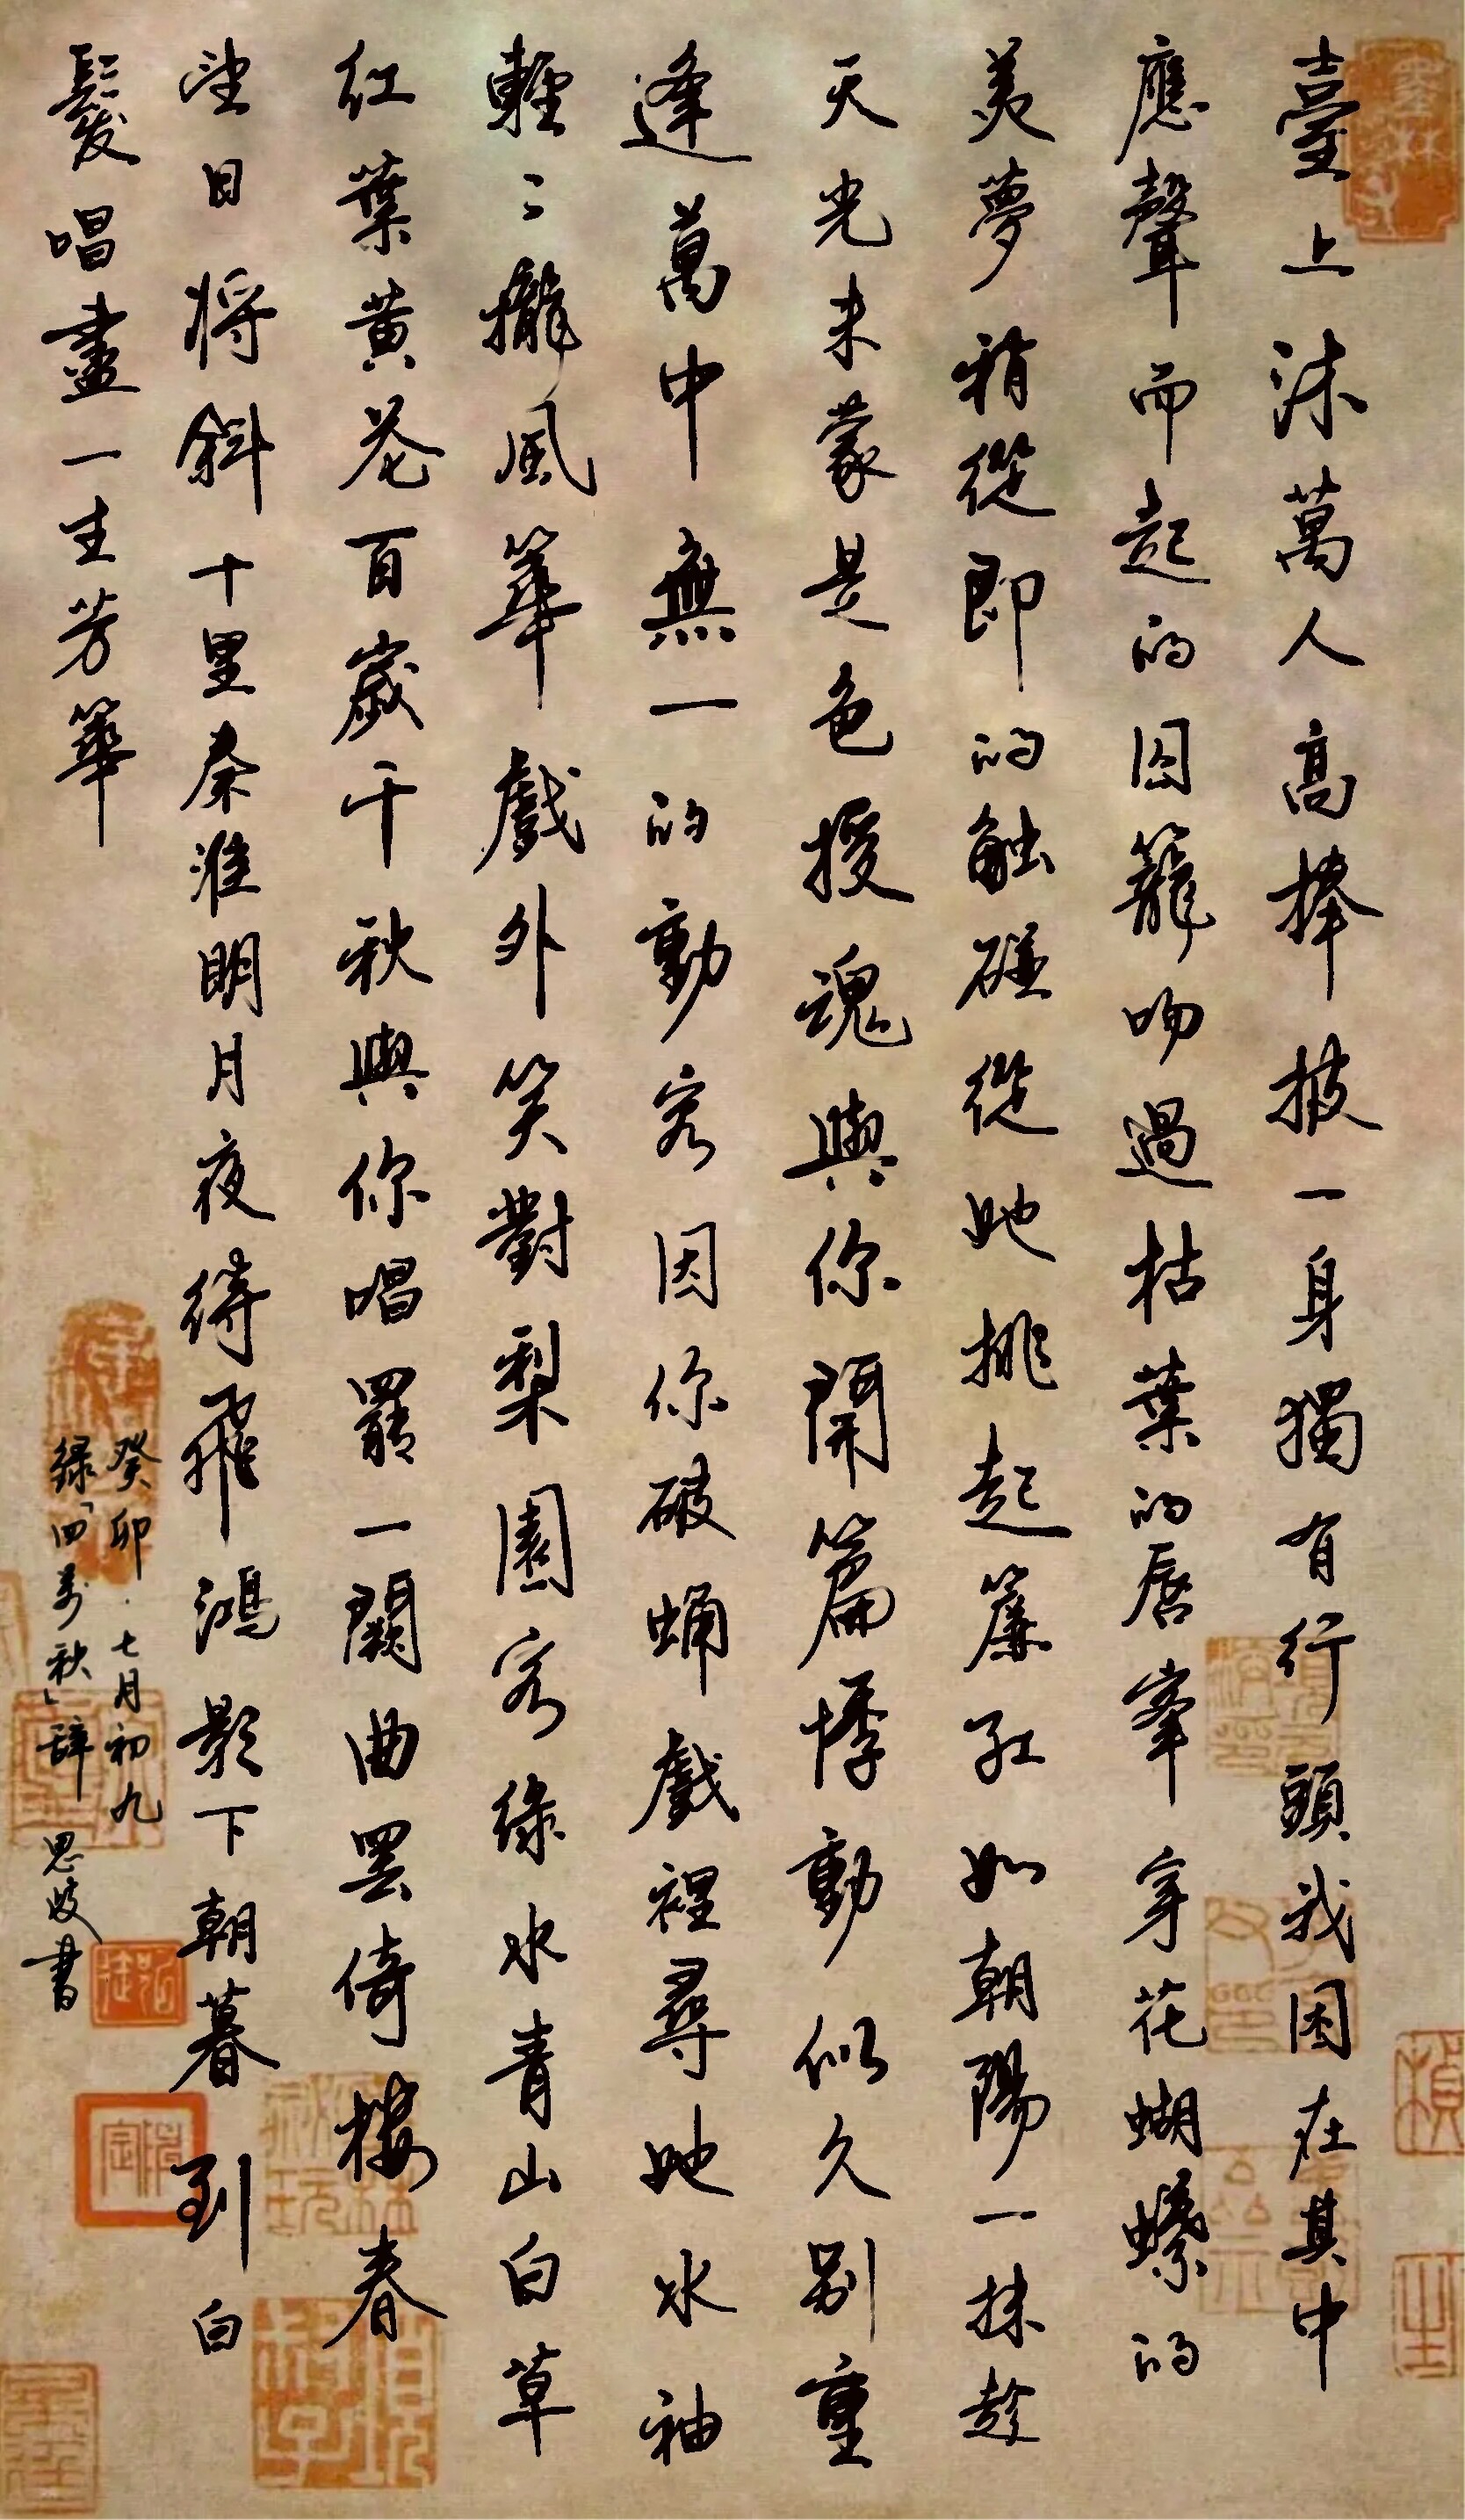 臺上沫萬人高捧披一身獨有行頭我困在其中
應聲而起的囚籠吻過枯葉的唇峯穿花蝴蝶的
美夢稍縱即的触碰從她挑起簾紅如朝陽一抹趁
天光未蒙是色授魂與你開篇悸動似久別重
逢萬中無一的動容因你破蛹戲裡尋她水袖
輕〻攏風華戲外笑對梨園客綠水青山白草
紅葉黃花百歲千秋與你唱罷一闋曲罢倚樓春
望日將斜十里秦淮明月夜待飛鴻影下朝暮到白
髮唱盡一生芳華
癸卯·七月初九
録「四季秋」辞 思岐書